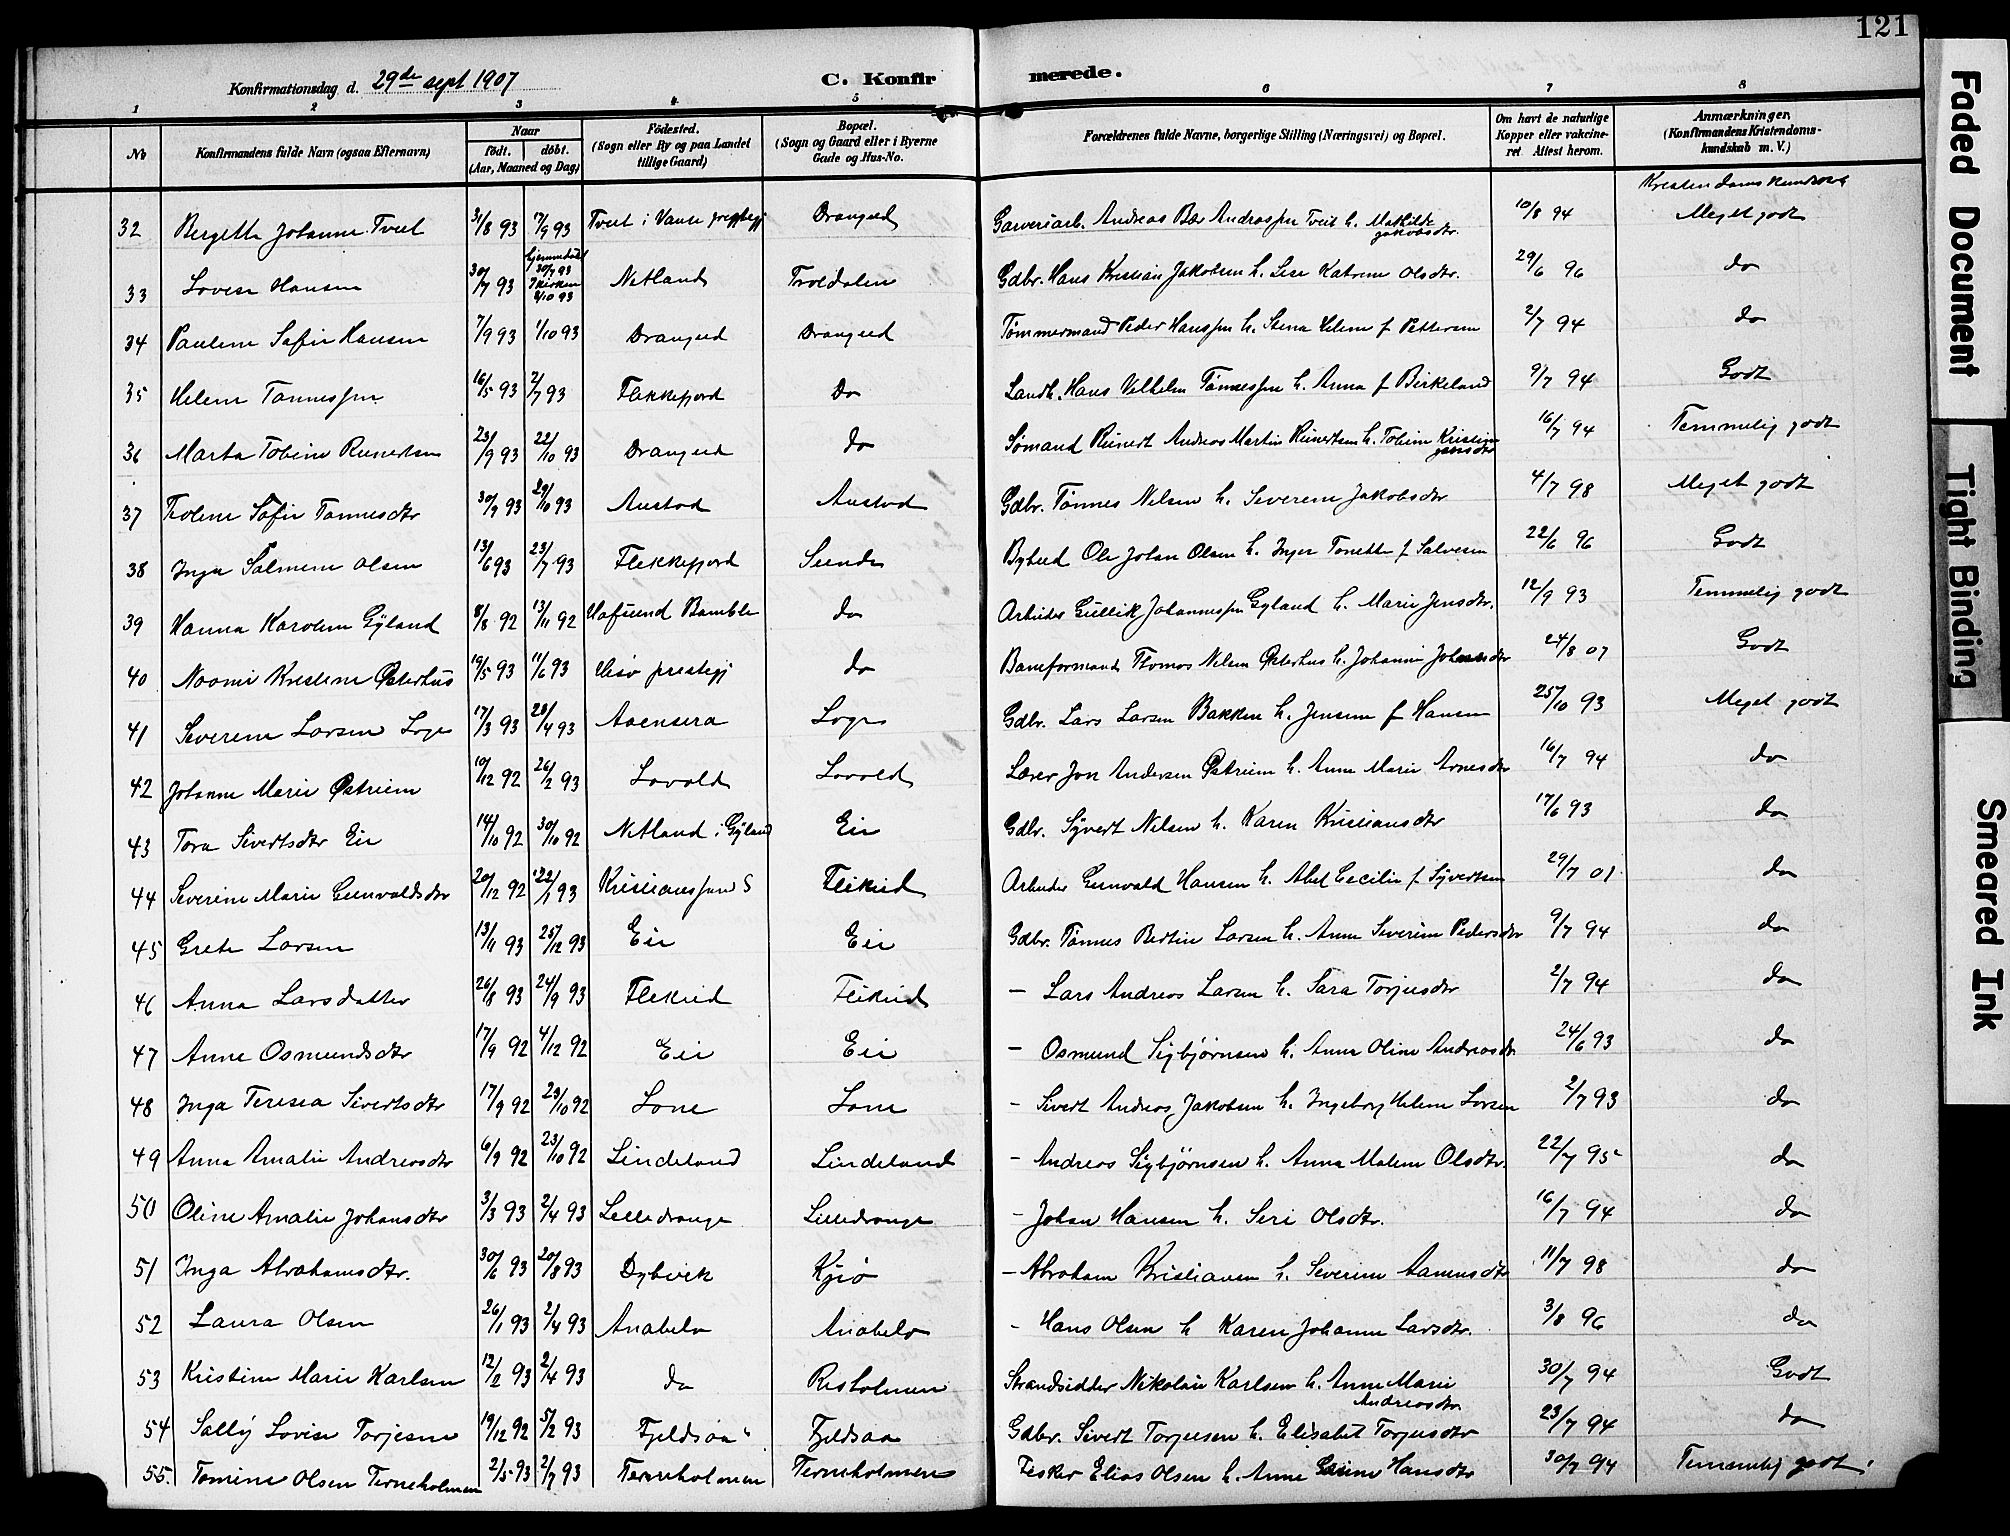 121
Konfirmationsdag d. 29de sept 1907
C. Konfir merede.
1 2 3 4 5 6 7 8
No
Konfirmandens fulde Navn (ogsaa Efternavn)
Naar
født. døbt.
(Aar, Maaned og Dag)
Fødested.
(Sogn eller By og paa Landet
tillige Gaard)
Bopæl.
(Sogn og Gaard eller i Byerne
Gade og Hus-No.
Forældrenes fulde Navne, borgerlige Stilling (Næringsvei) og Bopæl.
Om havt de naturlige
Kopper eller vakcine-
ret. Attest herom.
Anmærkninger.
(Konfirmandens Kristendoms-
kundskab m. V.)
Kristendomskundskab
32 Bergitte Johanne Tveit 31/8 93 17/9 93 Tveit i Vanse prestegj Drangeid Garveriarb. Andreas Bær Andreassen Tveit h. Mathilde Jakobsdtr. 10/8 94 Meget godt
33 Lovise Hansen 30/7 93 hjemmedøbt 30/7 93 I kirken 1/10 93 Netland Troldalen Gdbr. Hans Kristian Jakobsen h. Lise Katrine Olsdtr. 29/6 96 do
34 Pauline Sofie Hansen 7/9 93 1/10 93 Drangeid Drangeid Tømmermand Peder Hanssen h. Stena Helene f Pettersen 2/7 94 do
35 Helene Tønnessen 16/5 93 2/7 93 Flekkefjord Do Landh. Hans Vilhelm Tønnessen h. Anna f Birkeland 9/7 94 Godt
36 Marta Tobine Reinertsen 23/9 93 22/10 93 Drangeid do Sømand Reinert Andreas Martin Reinertsen h. Tobine Kristine Jensdtr 16/7 94 Temmelig godt
37 Teoline Sofie Tønnesdtr 30/9 93 29/10 93 Austad Austad Gdbr. Tønnes Nilsen h. Severine Jakobsdtr 4/7 98 Meget godt
38 Inga Salmine Olsen 13/6 93 23/7 93 Flekkefjord Sunde Bybud Ole Johan Olsen h. Inger Tonette f Salvesen 22/6 96 Godt
39 Hanna Karoline Gyland 8/8 92 13/11 92 Hafsund Bamble do Arbeider Gullik Johannessen Gyland h. Marie Jensdtr. 12/9 93 Temmelig godt
40 Naomi Kristine Østerhus 19/5 93 11/6 93 Hisø prestegj do Baneformand Thomas Nilsen Østerhus h. Johanne Johansdtr 24/8 07 Godt
41 Severine Larsen Loge 17/3 93 23/4 93 Aaensera Loge Gdbr. Lars Larsen Bakken h. Jensine f Hansen 25/10 93 Meget godt
42 Johanne Marie Østriem 19/12 92 26/2 93 Lavold Lavold Lærer Jon Andersen Østriem h. Anne Marie Arnesdtr 16/7 94 do
43 Tora Sivertsdtr Eie 14/10 92 30/10 92 Netland i Gyland Eie Gdbr. Syvert Nilsen h. Karen Kristiansdtr 17/6 93 do
44 Severine Marie Gunvaldsdtr 20/12 92 22/1 93 Kristianssand S Fleikeid Arbeider Gunvald Hansen h. Abel Cecilie f Syvertsen 29/7 01 do
45 Grete Larsen 13/11 93 25/12 93 Eie Eie Gdbr. Tønnes Bertin Larsen h. Anne Severine Pedersdtr 9/7 94 do
46 Anna Larsdatter 26/8 93 24/9 93 Fleikeid Fleikeid — Lars Andreas Larsen h. Sara Torjusdtr 2/7 94 do
47 Anne Osmundsdtr 17/9 92 4/12 92 Eie Eie — Osmund Sigbjørnsen h. Anne Oline Andreasdtr 24/6 93 do
48 Inga Teresia Sivertsdtr 17/9 92 23/10 92 Lone Lone — Sivert Andreas Jakobsen h. Ingeborg Helene Larsen 2/7 93 do
49 Anna Amalie Andreasdtr 6/9 92 23/10 92 Lindeland Lindeland — Andreas Sigbjørnsen h. Anna Malene Olsdtr. 22/7 95 do
50 Oline Amalie Johansdtr 3/3 93 2/4 93 Lilledrange Lilledrange — Johan Hansen h. Seri Olsdtr. 16/7 94 do
51 Inga Abrahamsdtr. 30/6 93 20/8 93 Dybvik Kjiø — Abraham Kristiansen h. Severine Aanensdtr 11/7 98 do
52 Laura Olsen 26/1 93 2/4 93 Anabelø Anabelø — Hans Olsen h Karen Johanne Larsdtr. 3/8 96 do
53 Kristine Marie Karlsen 12/2 93 2/4 93 do Risholmen Strandsidder Nikolai Karlsen h. Anne Marie Andreasdtr. 30/7 94 Godt
54 Sally Lovise Torjesen 19/12 92 5/2 93 Fjeldsaa Fjeldsaa Gdbr. Sivert Torjusen h. Elisabet Torjusdtr 23/7 94 do
55. Tomine Olsen Terneholmen 2/5 93 2/7 93 Terneholmen Terneholmen Fisker Elias Olsen h. Anne Hansdtr 30/7 94 Temmelig godt
Faded Document
Tight Binding
Smeared Ink